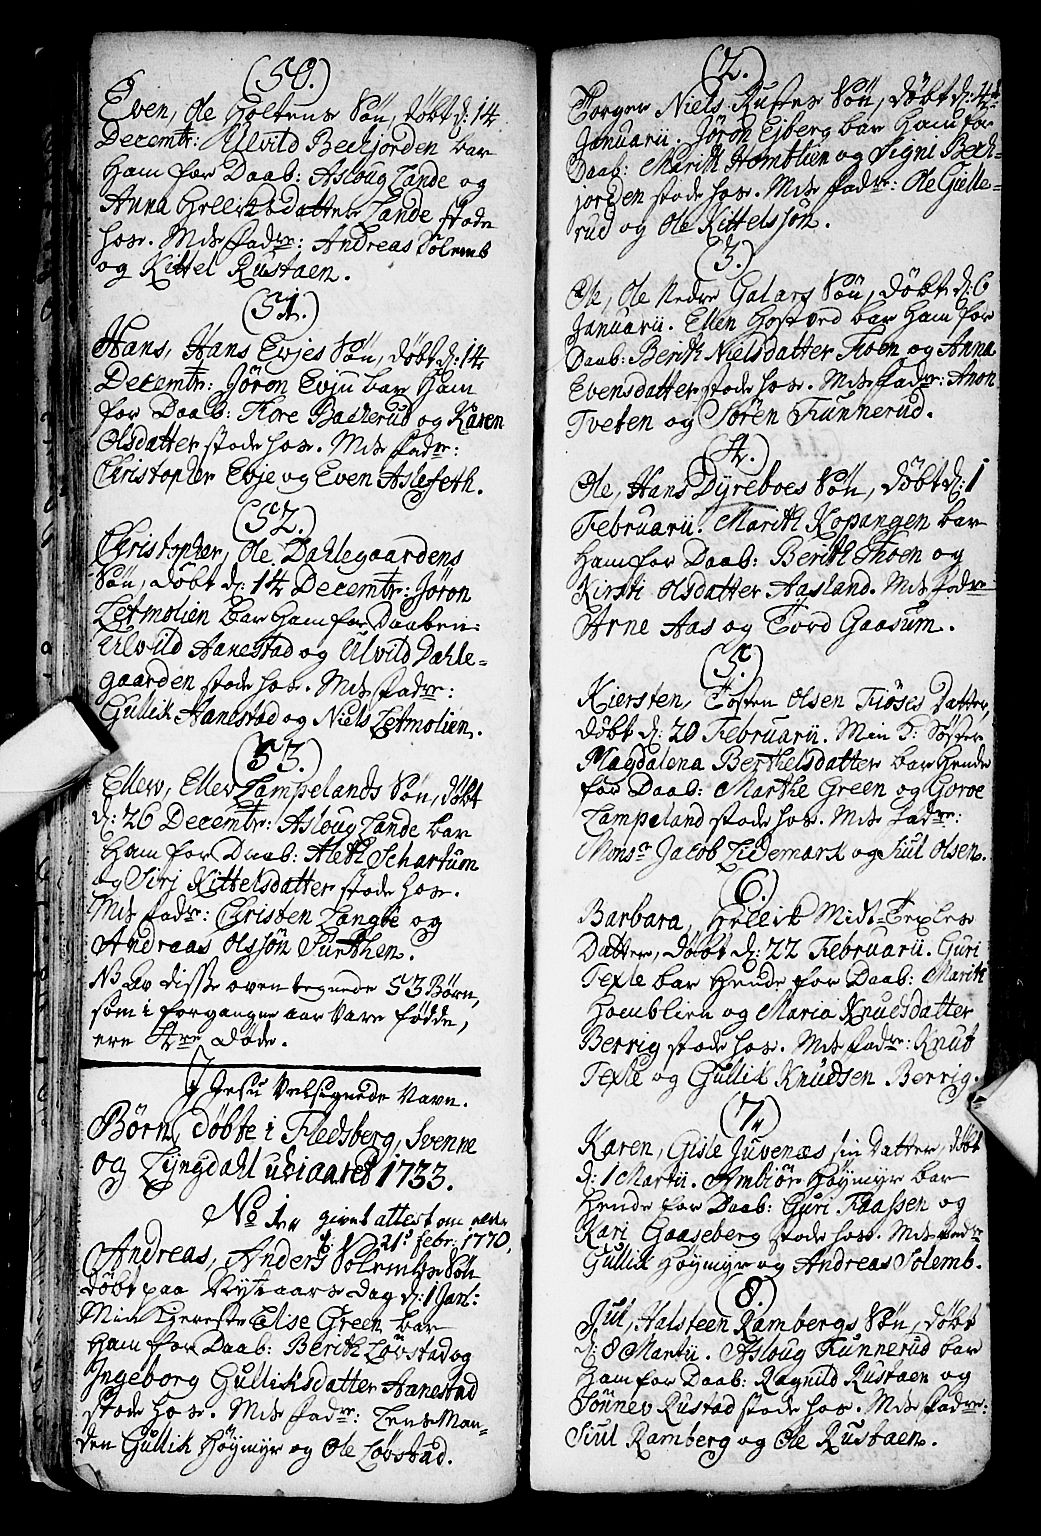 (50.)
Even, Ole Holtens Sön, döbt d: 14.
Decembr: Ulvild Beckjorden bar
ham for Daab: Asloug Lande og
Anna Lande stode
hos. Mds fadre: Andreas Solemb
og Kittel Rustaen.
(51.)
Hans, Hans Evjes Sön, döbt d: 14
Decembr: Jöron Evju bar ham
for Daab: Tore Backerud og Karen
Olsdatter stode hos. Mds fadre:
Christopher Evje og Even Aslefeth.
(52.)
Christopher, Ole Dahlegaardens
Sön, döbt d: 14 Decembr: Jöron
Letmolien bar ham for Daaben:
Ulvild Aanestad og Ulvild Dahle-
gaarden stode hos. Mds fadre:
Gullik Aanestad og Niels Letmolien.
(53.)
Ellev, Ellev Lampelands Sön, döbt
d: 26 Decembr: Asloug Lande bar
ham for Daab: Aleth Schartum
og Siri Kittelsdatter stode hos.
Mds fadre: Christen Langbe og
Andreas Olssön Surthen.
NB Av disse oven tegnede 53 Börn,
som i forgangne aar vare födde,
ere 4re döde.
I Jesu Velsignede Navn.
Börn, döbte i Fledsberg, Svenne
og Lyngdahl udi aaret 1733.
No 1. givet attest om
d: 21 febr: 1770.
Andreas, Anders Solembs Sön
döbt paa Nytaars Dag d: 1 Janr:
Min Kiereste Else Green bar
ham for Daab: Berith Lövstad og
Ingeborg Gulliksdatter Aanestad
stode hos. Mds fadre: Lens Man-
den Gullik Höymyr og Ole Lövstad.
(2.)
Torger Niels Rustes Sön, döbt d: 4de
Januarii. Jöron Ejberg bar ham for
Daab: Marith Homblien og Signi Beck-
jorden stode hos. Mds fadre: Ole Gielle-
rud og Ole Kittelssön.
3.)
Ole, Ole Nedre Galaas Sön, döbt d: 6
Januarii. Ellen Hostved bar ham for
Daab: Berith Nielsdatter Foen og Anna
Evensdatter stode hos. Mds fadre: Anon
Tveten og Sören Funnerud.
(4.)
Ole, Hans Dyreboes Sön, döbt d: 1
Februarii. Marith Kopangen bar
ham for Daab: Berith Thoen og
Kirsti Olsdatter Aasland. Mds fadre
Arne Aas og Tord Gaasum.
(5.)
Kiersten, Tosten Olsen Fiöses Datter,
döbt d: 20 Februarii. Min K: Söster
Magdalena Berthelsdatter bar hende
for Daab: Marthe Green og Goroe
Lampeland stode hos. Mds fadre:
Monsr Jacob Lidemark og Siul Olsen.
(6.)
Barbara, Hellik Midt-Texles
Datter, döbt d: 22 Februarii. Guri
Texle bar hende for Daab: Marith
Homblien og Maria Knudsdatter
Berrig stode hos. Mds fadre: Knut
Texle og Gullik Knudsen Berrig.
(7.)
Karen, Gisle Juvenæs sin datter, döbt
d: 1 Martii. Ambiör Höymyr bar
hende for Daab: Guri Kaassen og
Kari Gaaseberg stode hos. Mds fadre
Gullik Höymyr og Andreas Solemb.
(8.)
Jul, Halsteen Rambergs Sön, döbt
d: 8 Martii. Asloug Funnerud bar
ham for Daab: Ragnild Rustaen og
Sönnev Rustad stode hos. Mds fadre:
Siul Ramberg og Ole Rustaen.